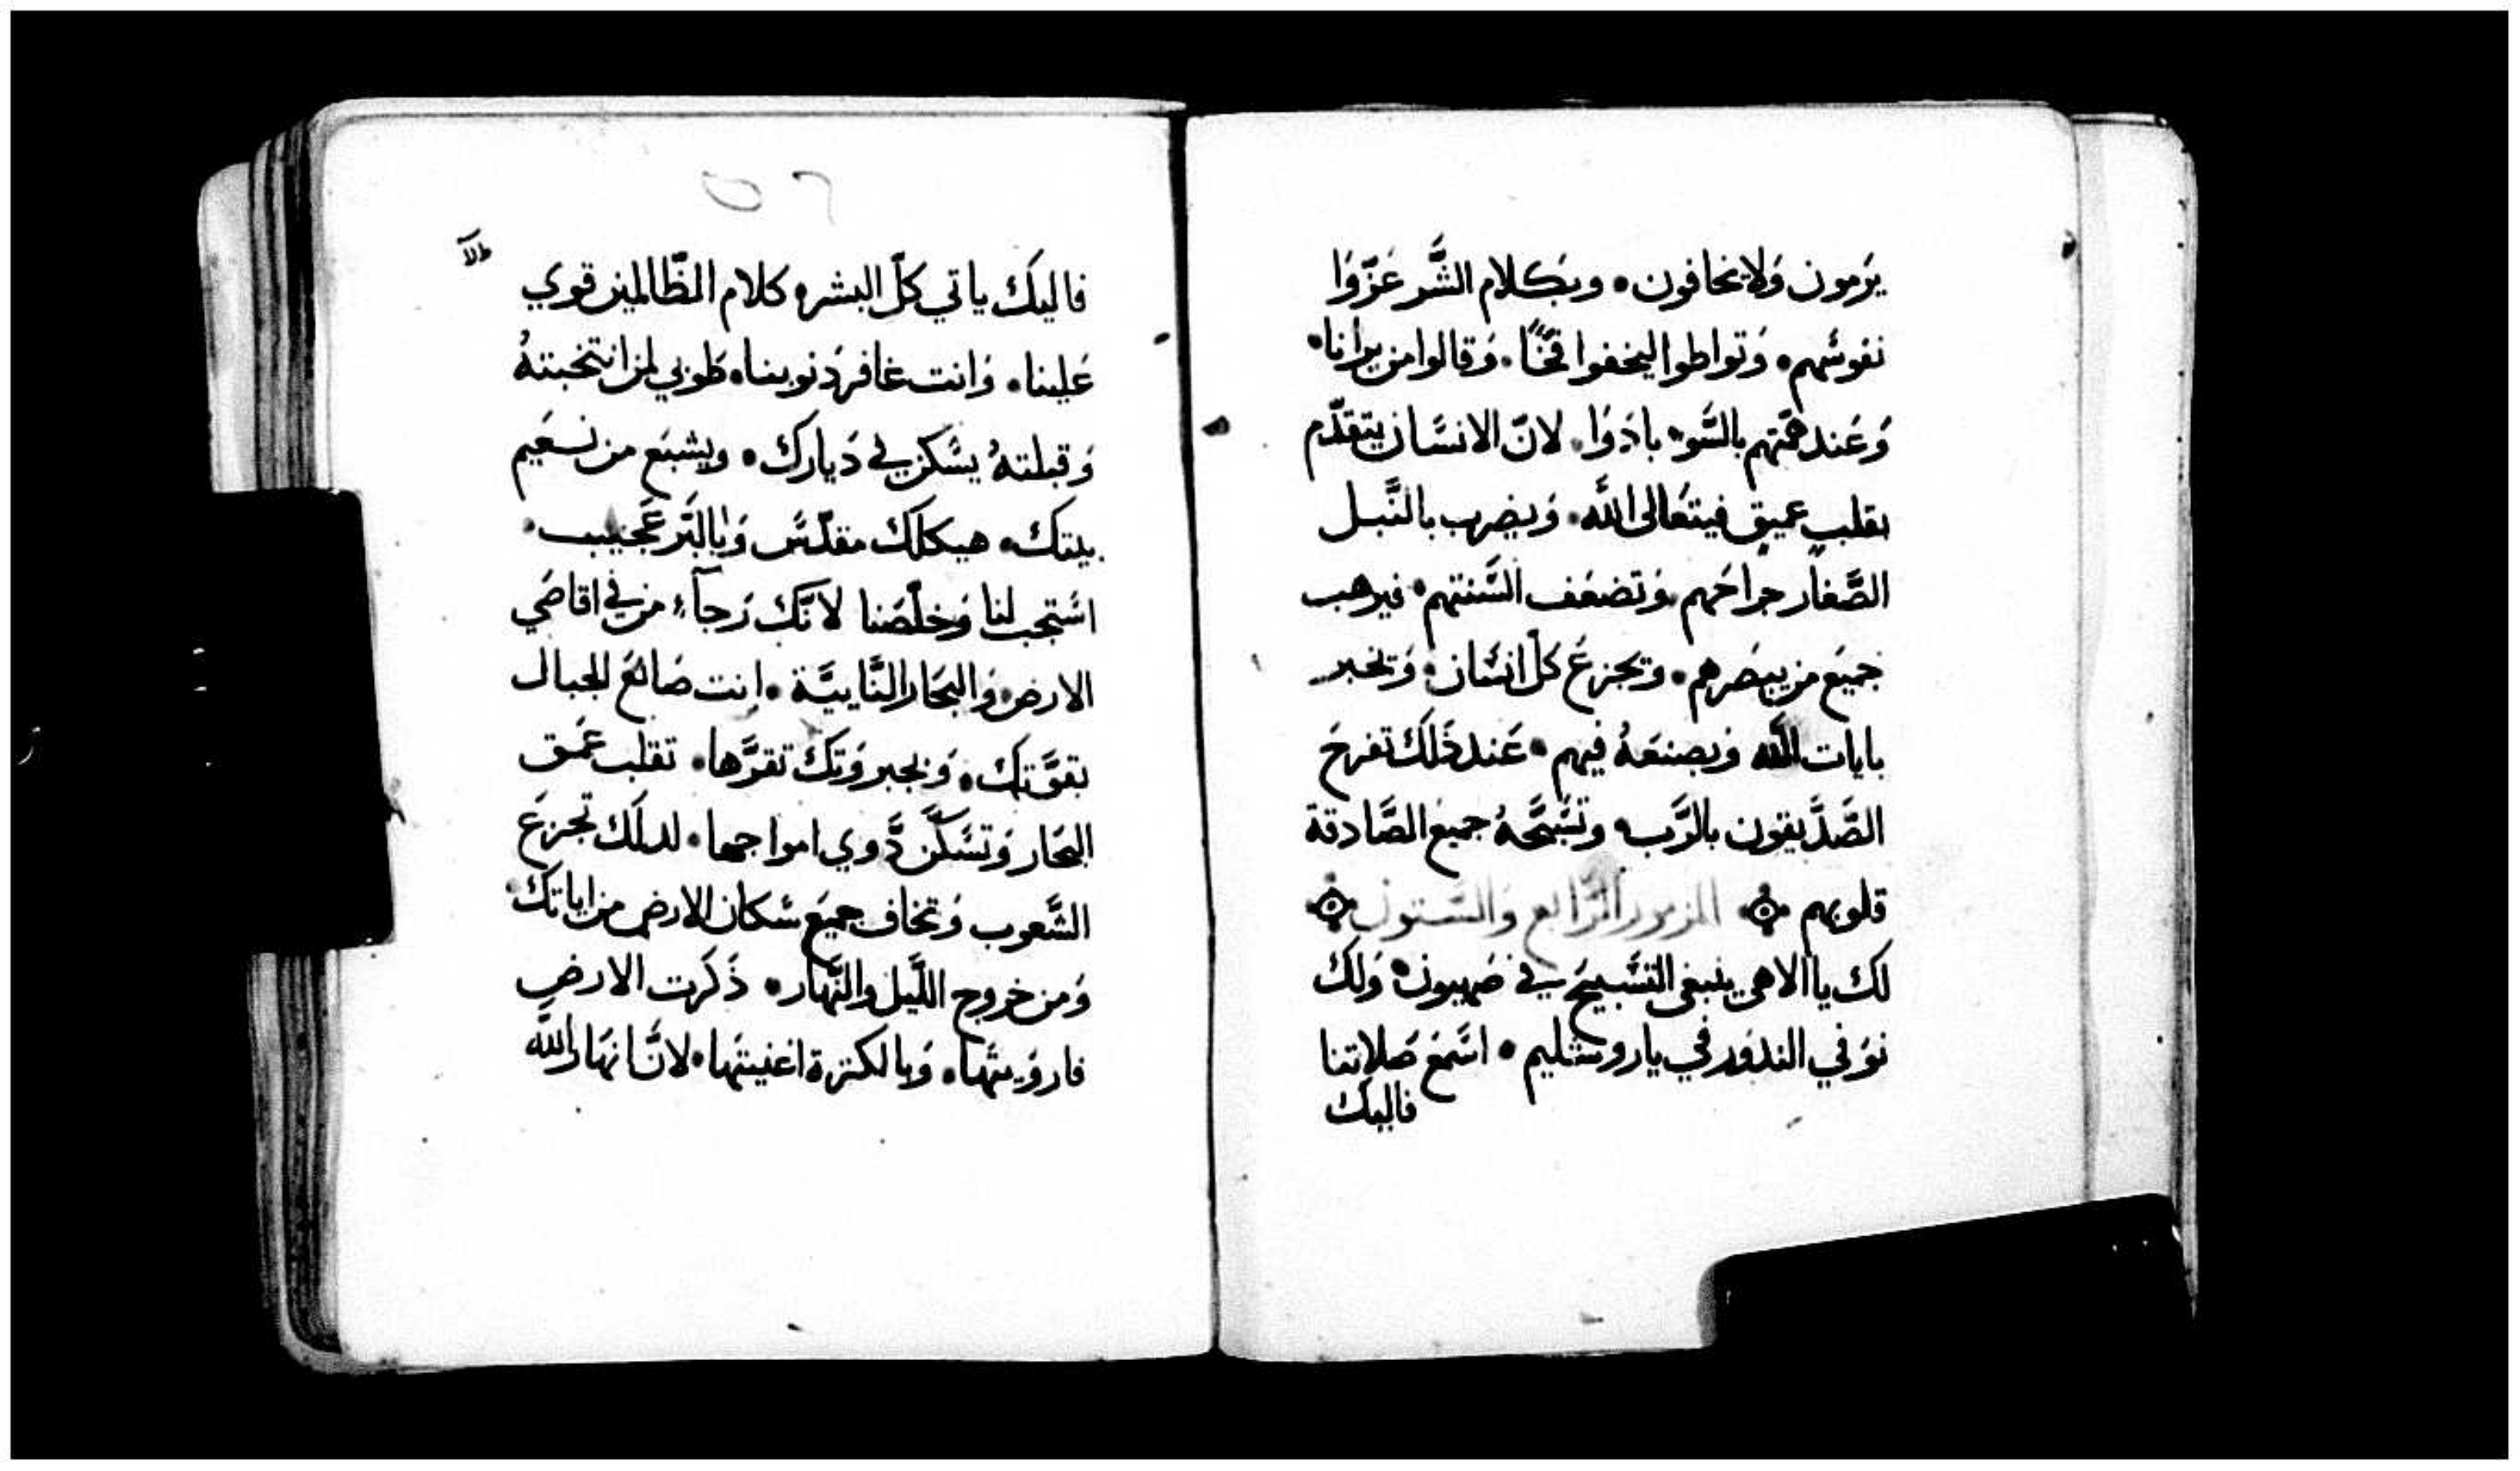 يَرمون وَلا يخافون • وبكلام الشَّر عَزّوَا
نفوسَهم • وَتواطوا ليخفوا فخًّا • وَقالوا من يرانا •
وَعَند همّتهم بالسَّوء بادَوَا • لانّ الانسَان يتقدّم
بقلب عميق فيتعَالى اللّه • وَيضرب بالنَّبل
الصَّغار جراحَهم وَتضعَف السَّنتهم • فيرهب
جميَع من يبصَرهم • وتجزعَ كلّ انسَان • وَتخبر
بايات اللّه وَبصنعَهُ فيهم • عَند ذَلك تفرحَ
الصَّدَّيقون بالرَّب • وتسَبَّحَهُ جميع الصَّادقة
قلوبهم المزمور الرَّابع وَالسَّتون
لك يا الاهي ينبغي التسَّبيحَ في صَهيون • وَلك
نوَفي الندوَر في ياروسَليم • اسَمعَ صَلاتنا
فاليك
٥٦
فاليك ياتي كلّ البشر • كلام الظّالمين قوي
عَلينا • وَانت غافر دَنوبنا • طَوبي لمن انتخبتهُ
وَقبلتهُ يسَكن في دَيارك • ويشبَع من نعَيم
بيتك • هيكلك مقدّسَ وَبالبَّر عَجيب •
اسَتجب لنا وَخلّصَنا لانَّك رَجآء من في اقاصَي
الارض وَالبحَار النَّاييَّة • انت صَانعَ الجبال
بقوَّتك • وَبجبروَتك تقرَّها • تقلب عَمق
البحَار وَتسَكَّن دَّوي امواجها • لدلَك تجزعَ
الشَّعوب وَتخاف جميَع سَكان الارض من اياتك •
وَمن خروج اللَّيل والنَّهار • ذَكَرت الارض
فاروَيتَها • وَبالكترة اغنيتَها • لانَّ انهَار اللّه